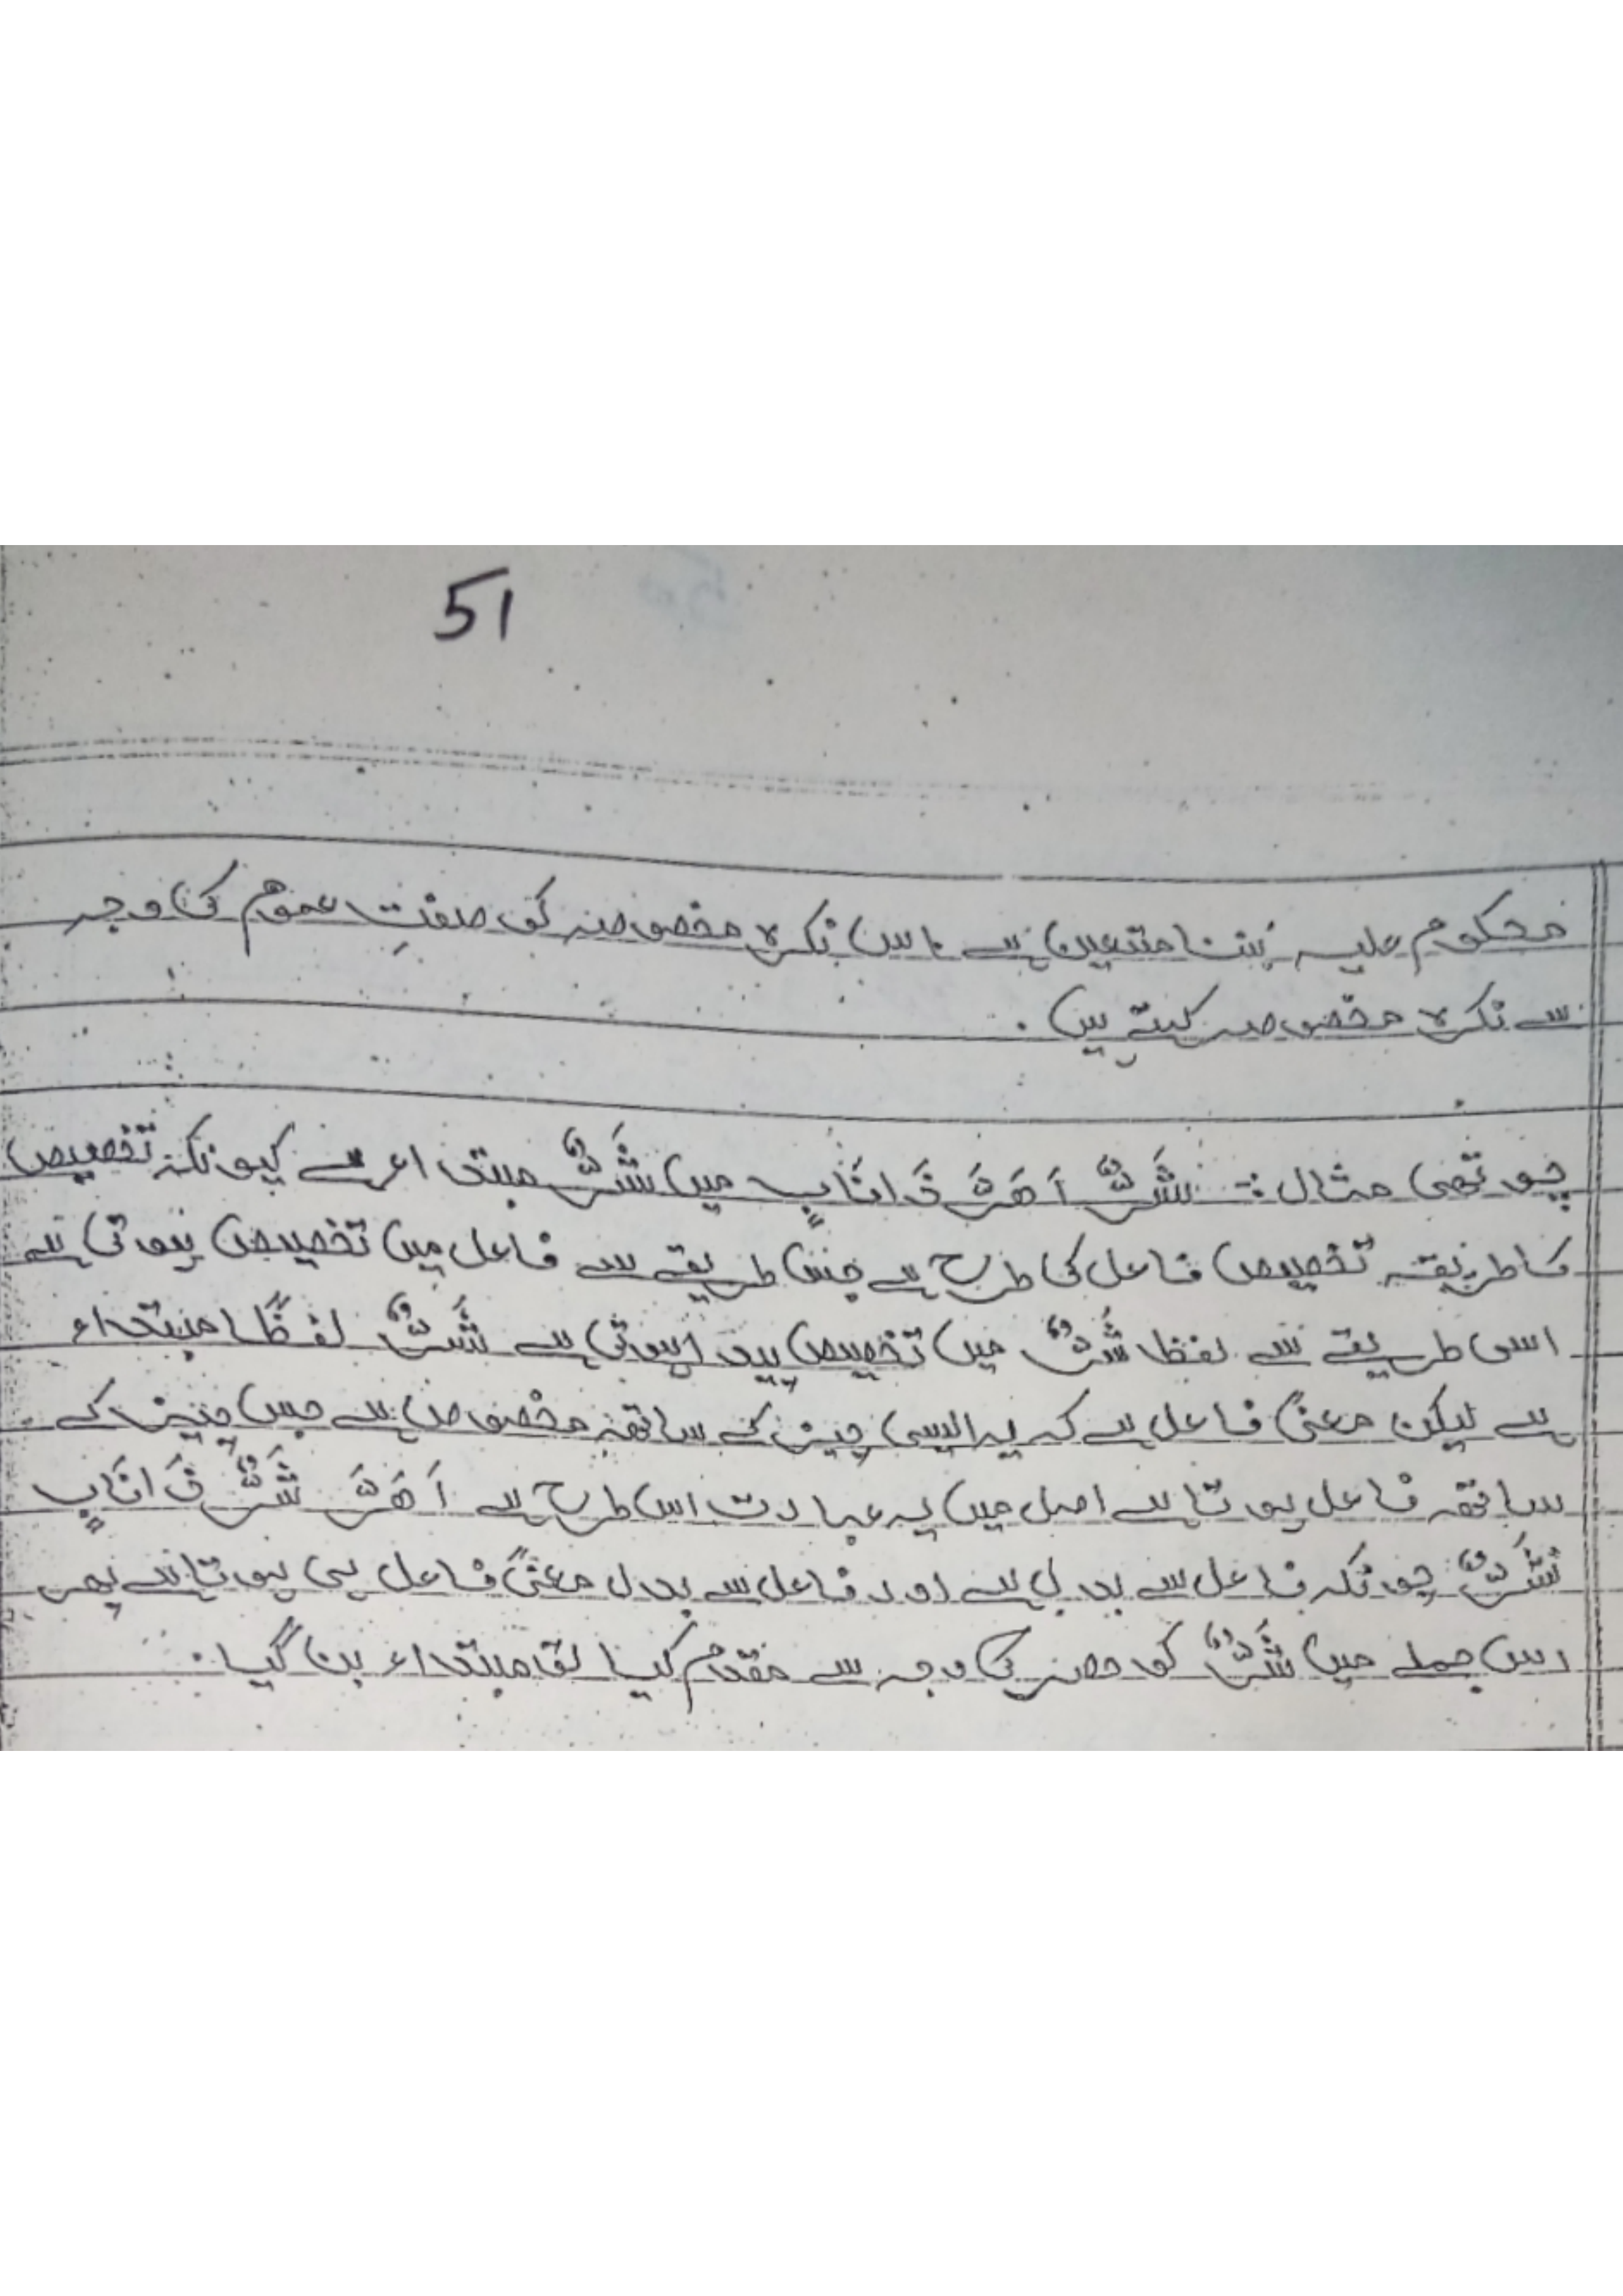 51
محکوم علیہ بننا متعین ہے ۔ اس نکرہ مخصوصہ کو صفتِ عموم کی وجہ
سے نکرہ مخصوصہ کہتے ہیں ۔
چوتھی مثال :- شَرٌّ اَھَرَّ ذَانَابٍ میں شَرٌّ مبتداء ہے کیونکہ تخصیص
کا طریقہ تخصیص فاعل کی طرح ہے جس طریقے سے فاعل میں تخصیص ہوتی ہے
اسی طریقے سے لفظ شَرٌّ میں تخصیص پیدا ہوتی ہے شَرٌّ لفظًا مبتداء
ہے لیکن معنیً فاعل ہے کہ یہ ایسی چیز کے ساتھ مخصوص ہے جس چیز کے
ساتھ فاعل ہوتا ہے اصل میں یہ عبادت اس طرح ہے اَھَرَّ شَرٌّ ذَانَابٍ
شَرٌّ چونکہ فاعل سے بدل ہے اور فاعل سے بدل معنیً فاعل ہی ہوتا ہے پھر
اس جملے میں شَرٌّ کو حصر کی وجہ سے مقدم کیا تو مبتداء بن گیا ۔